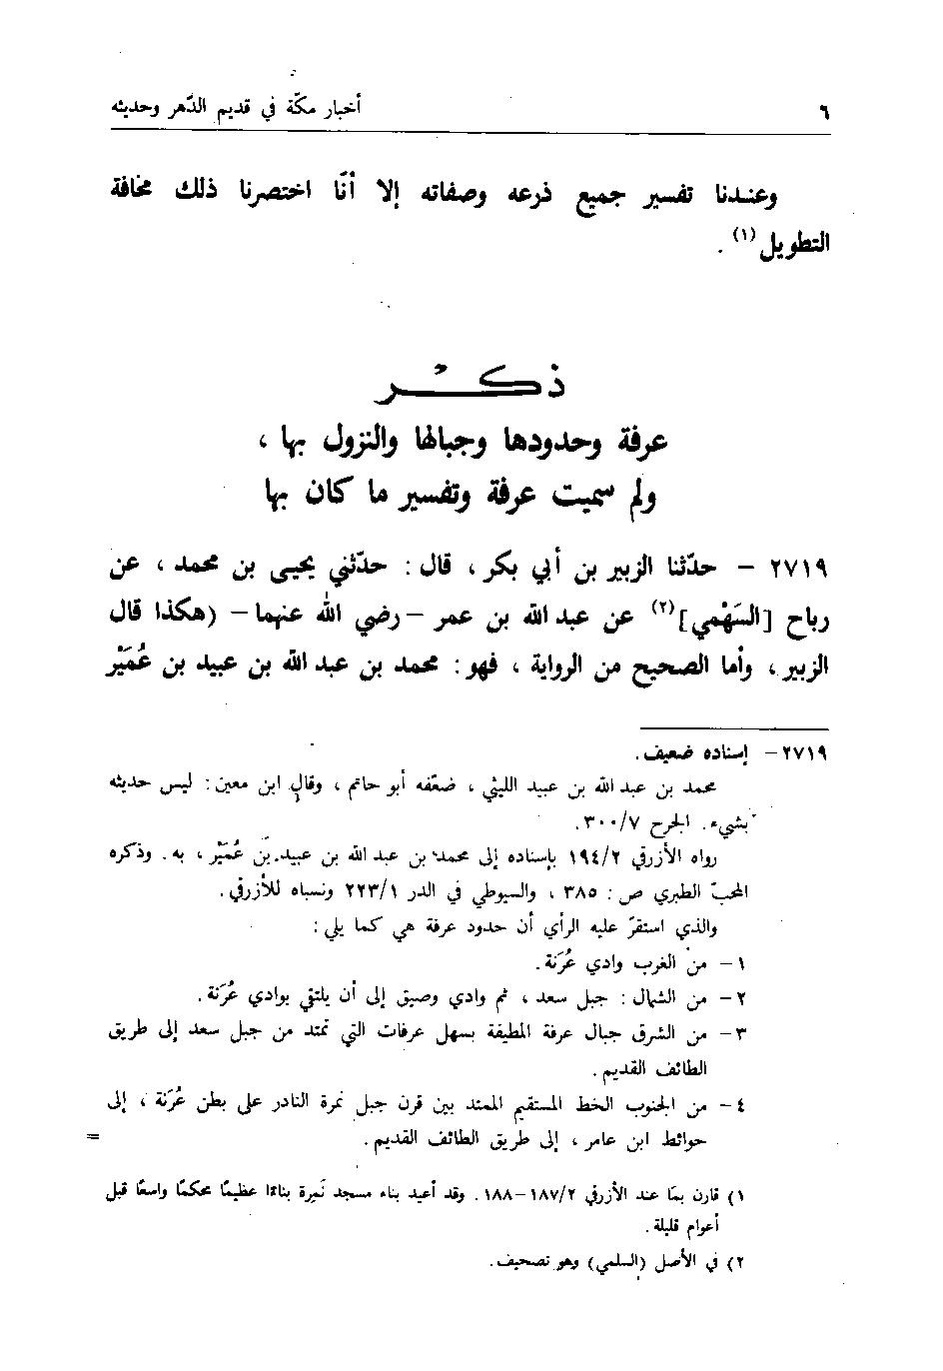 ٦
أخبار مكّة في قديم الدّهر وحديثه
وعندنا تفسير جميع ذرعه وصفاته إلا أنّا اختصرنا ذلك مخافة
التطويل(١) .
ذكر
عرفة وحدودها وجبالها والنزول بها ،
ولم سميت عرفة وتفسير ما كان بها
٢٧١٩ – حدّثنا الزبير بن أبي بكر ، قال : حدّثني يحيى بن محمد ، عن
رباح [السَهْمي](٢) عن عبد الله بن عمر – رضي الله عنهما – (هكذا قال
الزبير ، وأما الصحيح من الرواية ، فهو : محمد بن عبد الله بن عبيد بن عُمَيْر
٢٧١٩ – إسناده ضعيف .
محمد بن عبد الله بن عبيد الليثي ، ضعّفه أبو حاتم ، وقال ابن معين : ليس حديثه
بشيء . الجرح ٣٠٠/٧ .
رواه الأزرقي ١٩٤/٢ بإسناده إلى محمد بن عبد الله بن عبيد بن عُمَيْر ، به . وذكره
المحبّ الطبري ص : ٣٨٥ ، والسيوطي في الدر ٢٢٣/١ ونسباه للأزرقي .
والذي استقرّ عليه الرأي أن حدود عرفة هي كما يلي :
١ – من الغرب وادي عُرَنة .
٢ – من الشمال : جبل سعد ، ثم وادي وصيق إلى أن يلتقي بوادي عُرَنة .
٣ – من الشرق جبال عرفة المطيفة بسهل عرفات التي تمتد من جبل سعد إلى طريق
الطائف القديم .
٤ – من الجنوب الخط المستقيم الممتد بين قرن جبل نمرة النادر على بطن عُرَنة ، إلى
حوائط ابن عامر ، إلى طريق الطائف القديم . =
١) قارن بما عند الأزرقي ١٨٧/٢–١٨٨ . وقد أعيد بناء مسجد نَمِرة بناءًا عظيمًا محكمًا واسعًا قبل
أعوام قليلة .
٢) في الأصل (السلمي) وهو تصحيف .